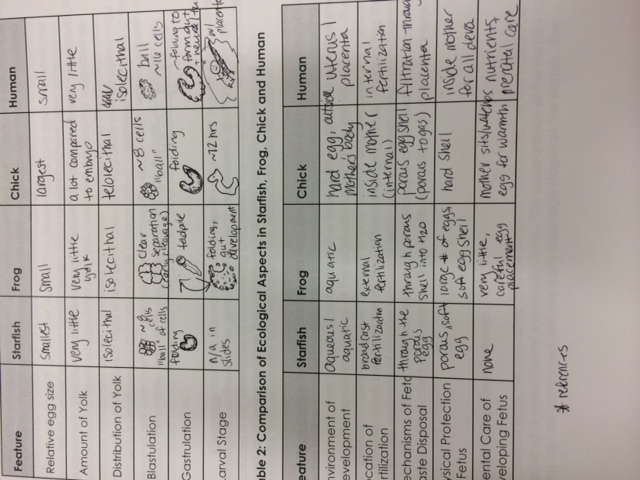 Feature Starfish Frog Chick Human
Relative egg size smallest small largest small
Amount of Yolk very little very little yolk a lot compared to embryo very little
Distribution of Yolk isolecithal isolecithal telolecithal isolecithal
Blastulation ~8 cells "ball" of cells clear separation ~8 cells "ball" ball ~16 cells
Gastrulation folding tadpole folding ~folding to form gut +
arval Stage N/A in slides folding, gut development ~12 hrs placenta
ble 2: Comparison of Ecological Aspects in Starfish, Frog, Chick and Human
eature Starfish Frog Chick Human
nvironment of evelopment aqueous/ aquatic aquatic hard egg, outside mother's body uterus/ placenta
ocation of rtilization broadcast fertilization external fertilization inside mother (internal) internal fertilization
echanisms of Feta aste Disposal through the porous egg through porous shell into H2O porous egg shell (porous to gas) filtration through placenta
ysical Protection Fetus porous, soft egg large # of eggs, soft egg shell hard shell inside mother for all deve
ental Care of veloping Fetus none very little, careful egg placement mother sits egg for warmth nutrients, prenatal care
# references